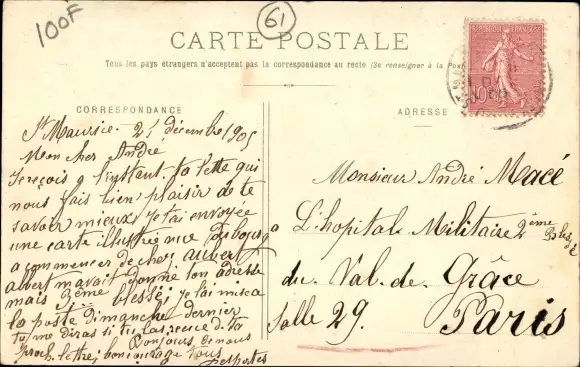 100F
61
CARTE POSTALE
Tous les pays étrangers n'acceptent pas la correspondance au recto (Se renseigner à la Poste)
REPUBLIQUE FRANÇAISE
10
CORRESPONDANCE
ADRESSE
St Maurice. 21 décembre 1905
Mon cher André
Je reçois a l'instant ta lettre qui
nous fais bien plaisir de te
savoir mieux. Je t'ai envoyée
une carte illustrée vue
a commencer de chez
avait donné ton adresse
mais 2ème blessé; je t'ai mise a
la poste Dimanche dernier
tu me diras si tu l'as recue d. ta
proch. lettre; bon courage
Bonjours de nous
tous
Delportes
Monsieur André Macé
a L'hopital Militaire 2ème Blessé
du Val. de Grâce
Salle 29. Paris